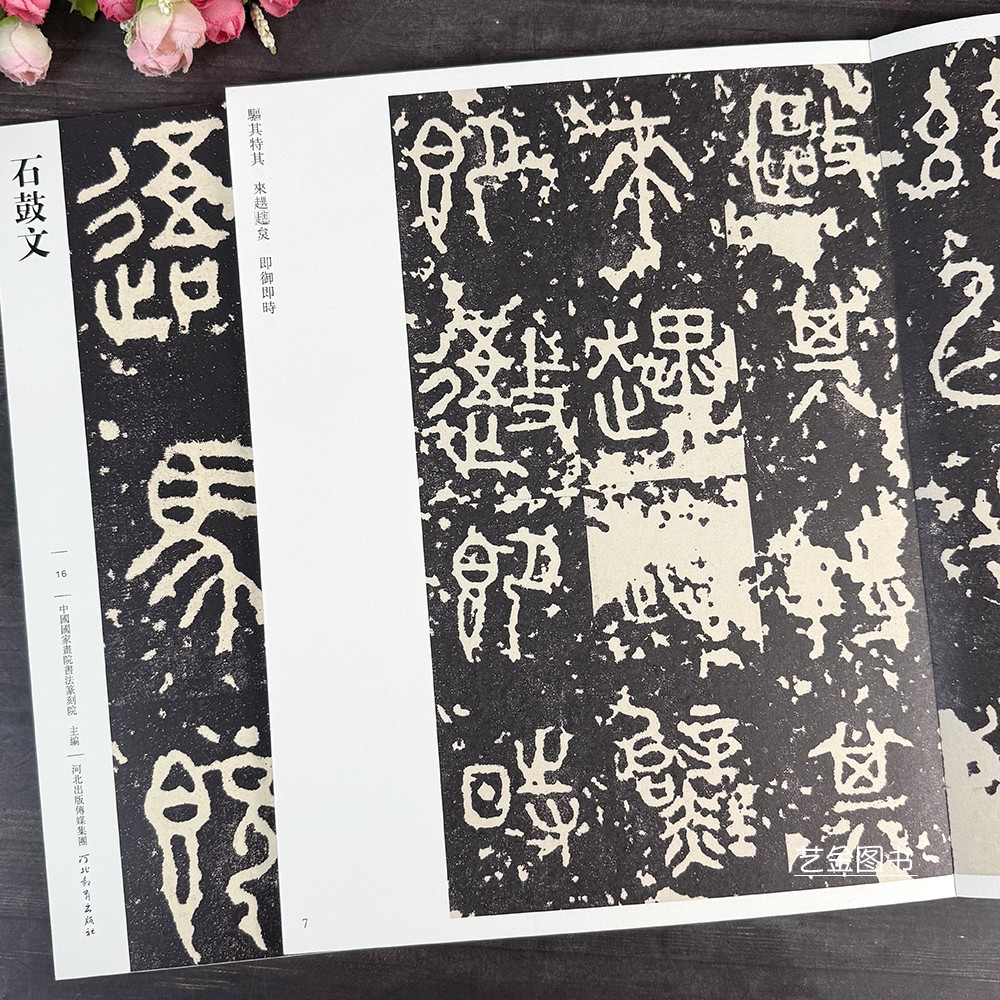 石鼓文
16
中國國家畫院書法篆刻院 主編
河北出版傳媒集團
河北教育出版社
馬既
驅其特其 來趩趩炱 即御即時
驅其特其
來趩
即御即時
7
艺金图书